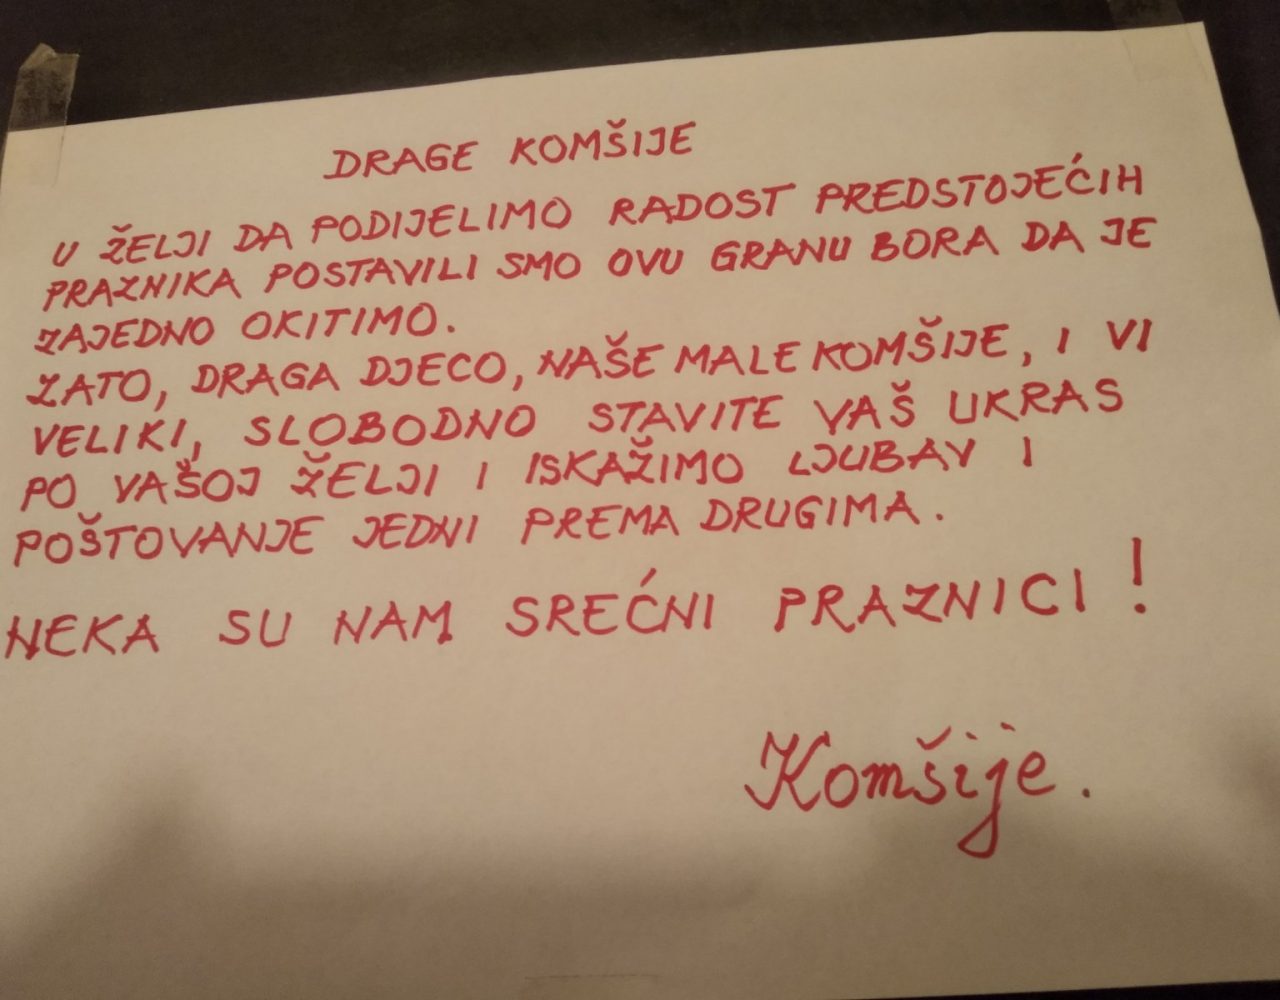 DRAGE KOMŠIJE
U ŽELJI DA PODIJELIMO RADOST PREDSTOJEĆIH
PRAZNIKA POSTAVILI SMO OVU GRANU BORA DA JE
ZAJEDNO OKITIMO.
ZATO, DRAGA DJECO, NAŠE MALE KOMŠIJE, I VI
VELIKI, SLOBODNO STAVITE VAŠ UKRAS
PO VAŠOJ ŽELJI I ISKAŽIMO LJUBAV I
POŠTOVANJE JEDNI PREMA DRUGIMA.
NEKA SU NAM SREĆNI PRAZNICI!
Komšije.